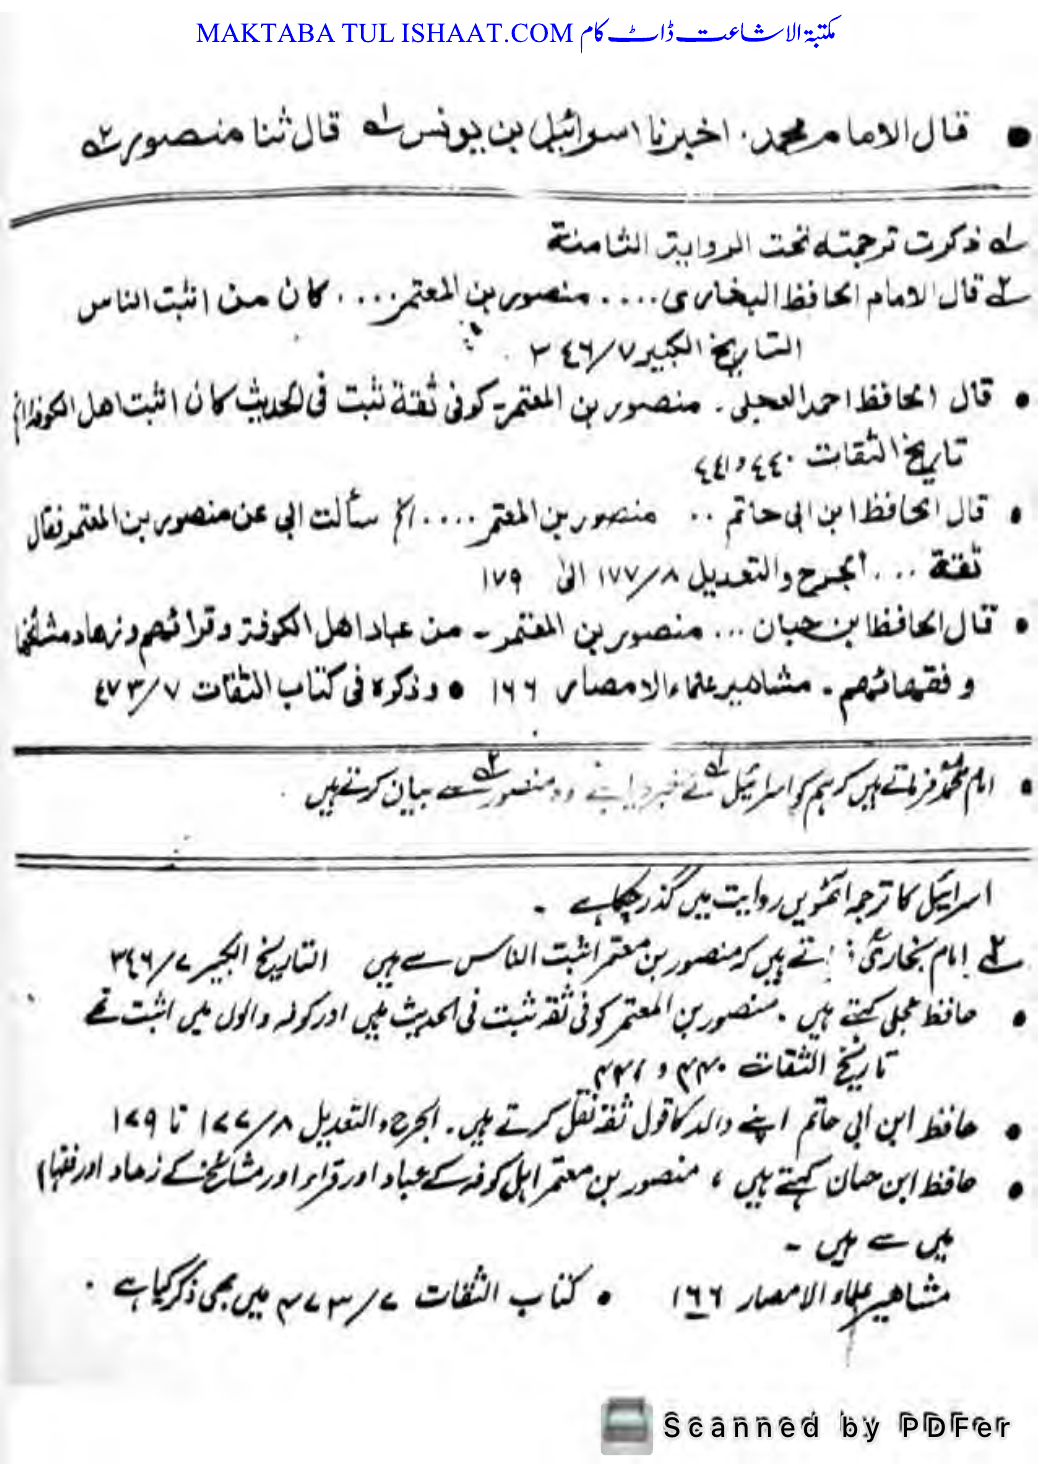 MAKTABA TUL ISHAAT.COM مکتبۃ الاشاعت ڈاٹ کام
● قال الامام محمد. اخبرنا اسرائیل بن یونس لہ قال ثنا منصور ۲ہ
لہ ذکرت ترجمتہ تحت الروایۃ الثامنۃ
۲ہ قال الامام الحافظ البخاری .... منصور بن المعتمر .... کان من اثبت الناس
التاریخ الکبیر ۷/۳٤٦
● قال الحافظ احمد العجلی۔ منصور بن المعتمر۔ کوفی ثقۃ ثبت فی الحدیث کان اثبت اهل الکوفۃ الخ
تاریخ الثقات ٤٤٠ و ٤٤١
● قال الحافظ ابن ابی حاتم .. منصور بن المعتمر .... الخ سألت ابی عن منصور بن المعتمر فقال
ثقۃ ... الجرح والتعدیل ۸/۱۷۷ الیٰ ۱۷۹
● قال الحافظ ابن حبان ... منصور بن المعتمر۔ من عباد اهل الکوفۃ و قرائهم و زهاد مشائخها
و فقهائهم۔ مشاهیر علماء الامصار ١٦٦ ● و ذکرہ فی کتاب الثقات ۷/٤٧٣
● امام محمدؒ فرماتے ہیں کہ ہم کو اسرائیل لہ نے خبر دی وہ منصور ۲ہ سے بیان کرتے ہیں
اسرائیل کا ترجمہ آٹھویں روایت میں گذر چکا ہے ۔
۲ہ امام بخاریؒ فرماتے ہیں کہ منصور بن معتمر اثبت الناس سے ہیں التاریخ الکبیر ۷/۳۴۶
● حافظ عجلی کہتے ہیں . منصور بن المعتمر کوفی ثقہ ثبت فی الحدیث ہیں اور کوفہ والوں میں اثبت تھے
تاریخ الثقات ۴۴۰ و ۴۴۱
● حافظ ابن ابی حاتم اپنے والد کا قول ثقہ نقل کرتے ہیں۔ الجرح والتعدیل ۸/۱۷۷ تا ۱۷۹
● حافظ ابن حبان کہتے ہیں ، منصور بن معتمر اہل کوفہ کے عباد اور قراء اور مشائخ کے زهاد اور فقہاء
میں سے ہیں ۔
مشاهیر علماء الامصار ۱۶۶ ● کتاب الثقات ۷/۴۷۳ میں بھی ذکر کیا ہے .
Scanned by PDFer